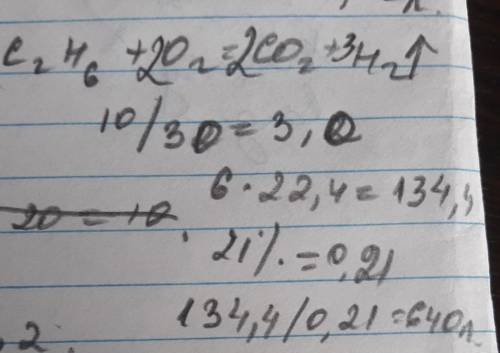 C₂H₆ + 2O₂ = 2CO₂ + 3H₂↑
10/30 = 3,0
6 · 22,4 = 134,4
20 = 10
21% = 0,21
134,4/0,21 = 640л
,2.